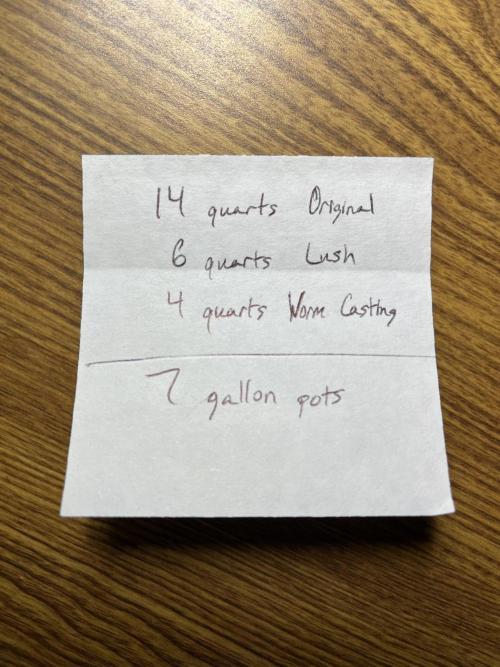 14 quarts Original
6 quarts Lush
4 quarts Worm Casting
7 gallon pots